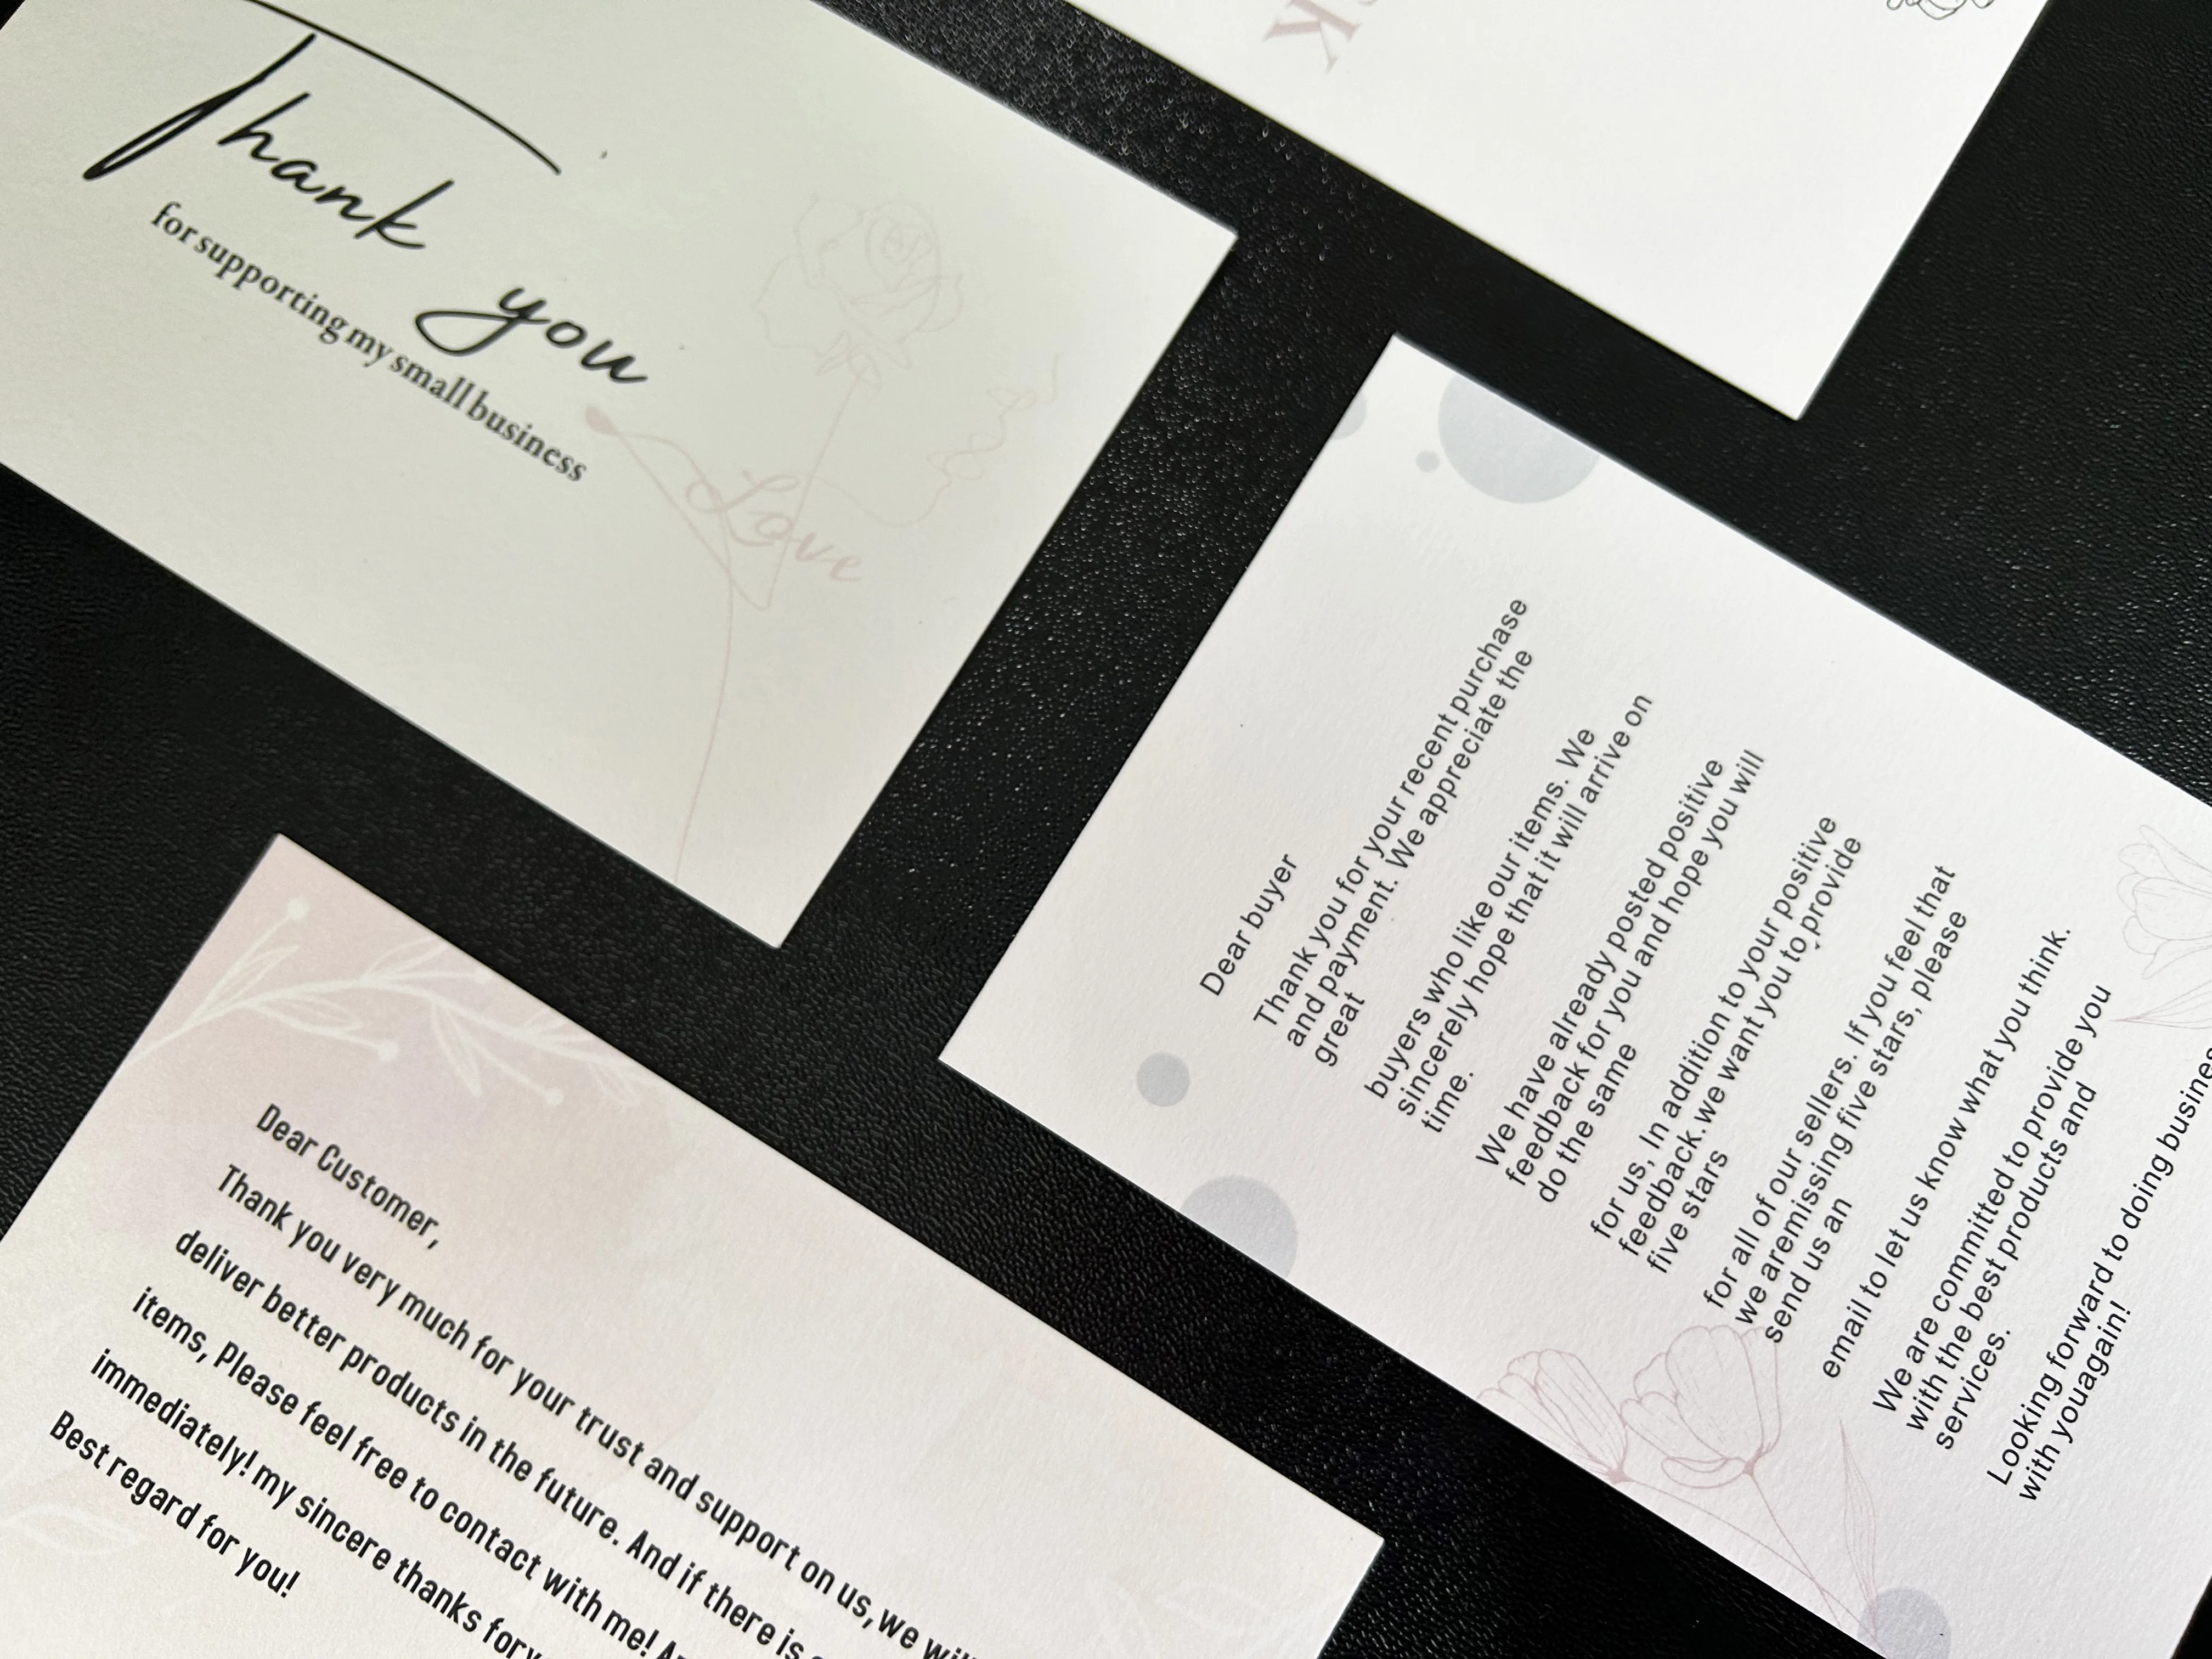 Thank you
for supporting my small business
Love
Dear buyer
Thank you for your recent purchase
and payment. We appreciate the
great
buyers who like our items. We
sincerely hope that it will arrive on
time.
We have already posted positive
feedback for you and hope you will
do the same
for us, In addition to your positive
feedback. we want you to provide
five stars
for all of our sellers. If you feel that
we aremissing five stars, please
send us an
email to let us know what you think.
We are committed to provide you
with the best products and
services.
Looking forward to doing
with youagain!
Dear Customer,
Thank you very much for your trust and support on us, we
deliver better products in the future. And if there is
items, Please feel free to contact with me!
immediately! my sincere thanks for
Best regard for you!